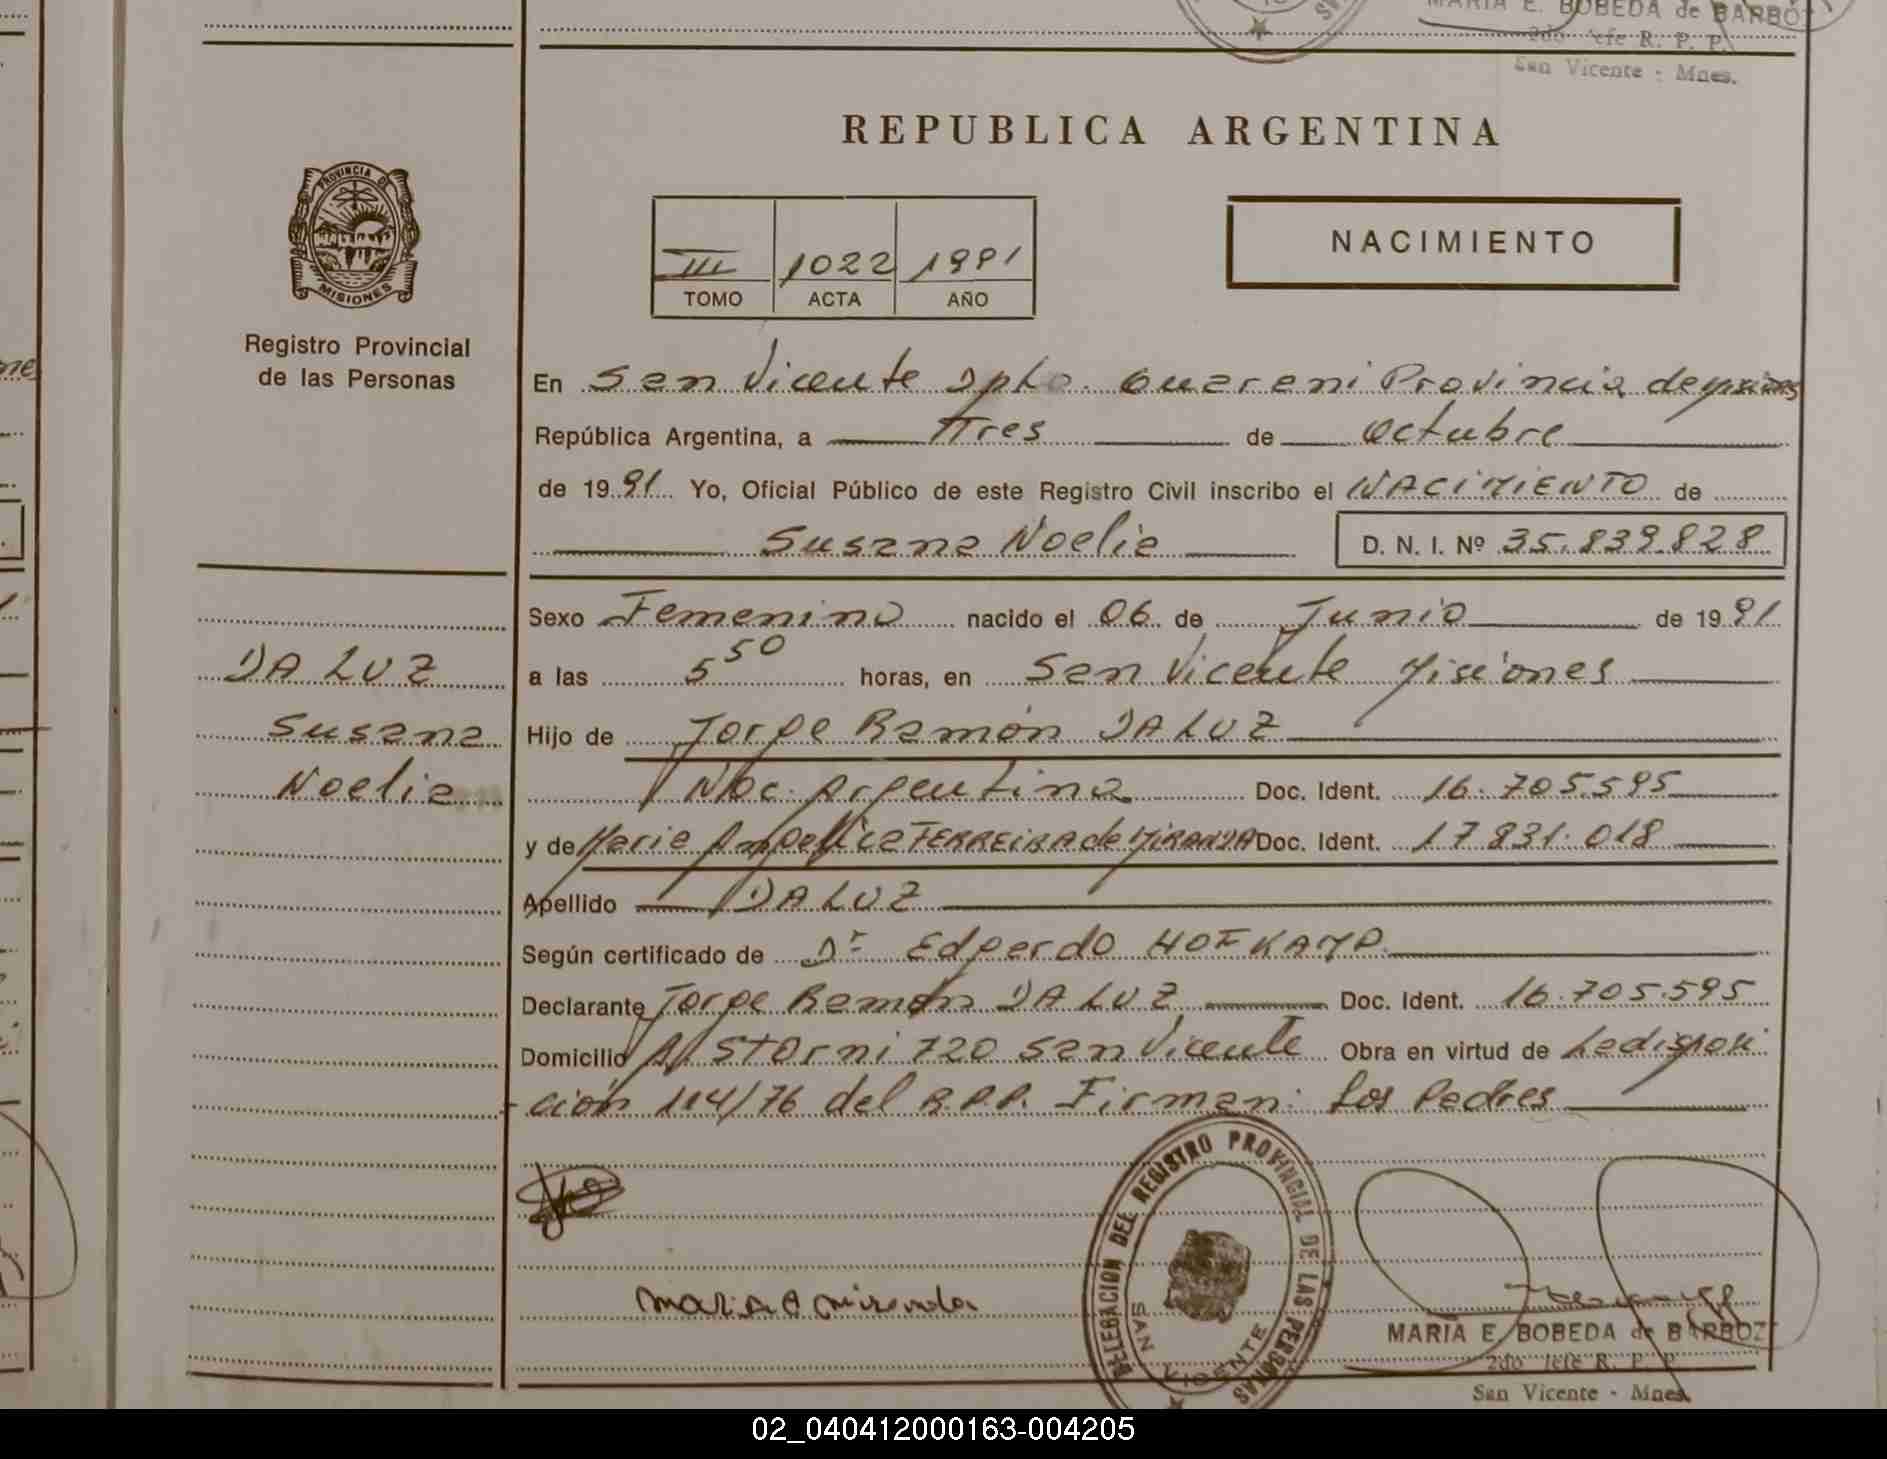 MARIA E. BOBEDA de BARBO
2do Jefe R. P. P.
San Vicente - Mnes.
REPUBLICA ARGENTINA
PROVINCIA DE
MISIONES
Registro Provincial
de las Personas
III 1022 1991
TOMO ACTA AÑO
NACIMIENTO
En San Vicente Dpto. Guarani Provincia de Misiones
República Argentina, a Tres de Octubre
de 1991 Yo, Oficial Público de este Registro Civil inscribo el NACIMIENTO de
Susana Noelia D. N. I. Nº 35.839.828
Sexo Femenino nacido el 06 de Junio de 1991
DA LUZ
a las 5 50 horas, en San Vicente Misiones
Susana
Hijo de Jorge Ramón DA LUZ
Noelia
Nac. Argentina Doc. Ident. 16.705.595
y de Maria Angelica FERREIRA de MIRANDA Doc. Ident. 17.831.018
Apellido DA LUZ
Según certificado de Dr Edgardo HOFKAMP.
Declarante Jorge Ramón DA LUZ Doc. Ident. 16.705.595
Domicilio A. Storni 720 San Vicente Obra en virtud de La disposi
ción 114/76 del R.P.P. Firman: Los Padres
DELEGACION DEL REGISTRO PROVINCIAL DE LAS PERSONAS
SAN VICENTE
Maria A Miranda
MARIA E. BOBEDA de BARBOZ
2do Jefe R. P. P.
San Vicente - Mnes.
02_040412000163-004205